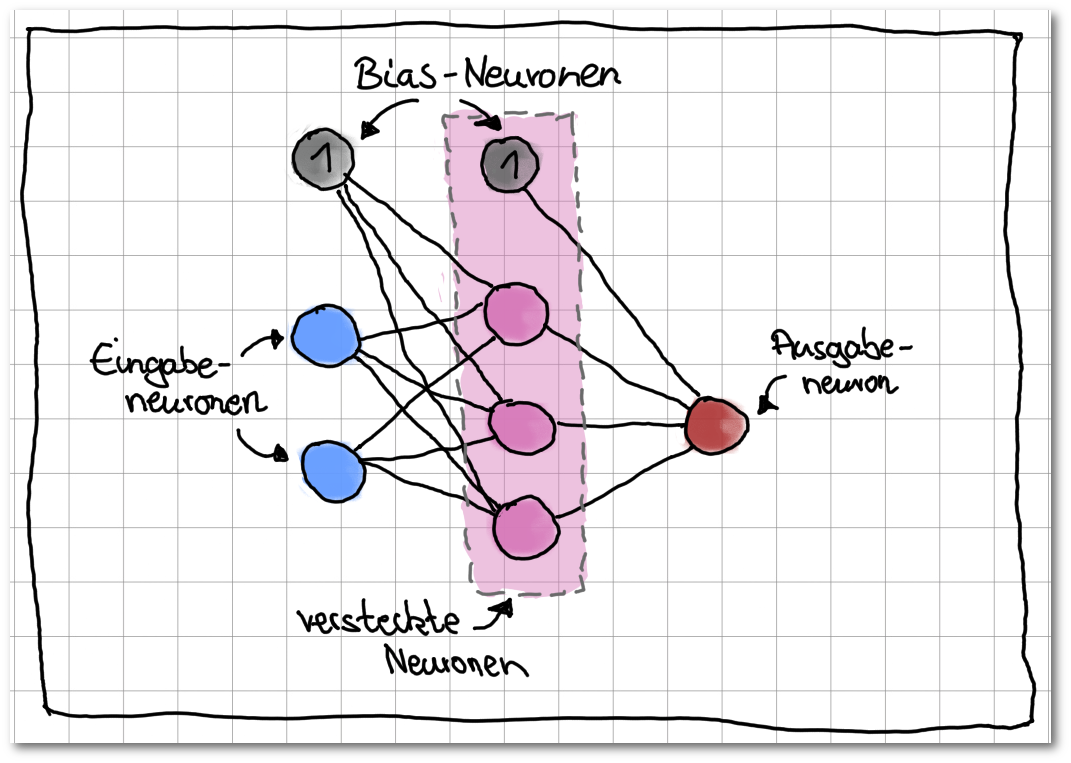 Bias-Neuronen
1
1
Eingabe-
neuronen
Ausgabe-
neuron
versteckte
Neuronen